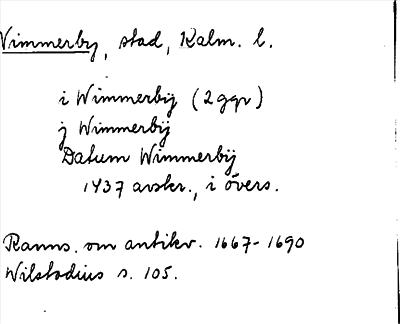 Vimmerby, stad, Kalm. l.
i Wimmerbij (2 ggr)
j Wimmerbij
Datum Wimmerbij
1437 avskr., i övers.
Ranns. om antikv. 1667-1690
Wilstadius s. 105.